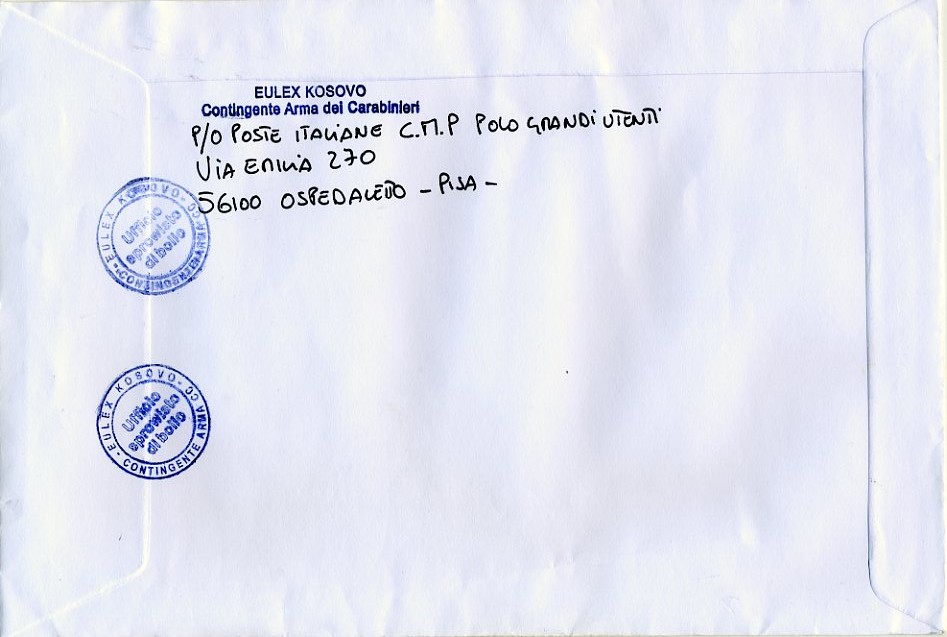 EULEX KOSOVO
Contingente Arma dei Carabinieri
P/O POSTE ITALIANE C.M.P POLO GRANDI UTENTI
VIA EMILIA 270
56100 OSPEDALETTO - PISA -
- EULEX KOSOVO - CONTINGENTE ARMA CC
Ufficio
sprovvisto
di bollo
- EULEX KOSOVO - CONTINGENTE ARMA CC
Ufficio
sprovvisto
di bollo